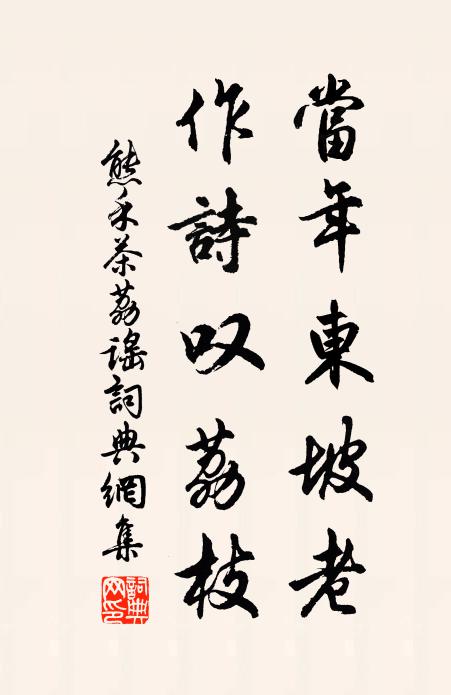 當年東坡老
作詩叹荔枝
熊禾茶荔謡詞典網集
詞典
网印